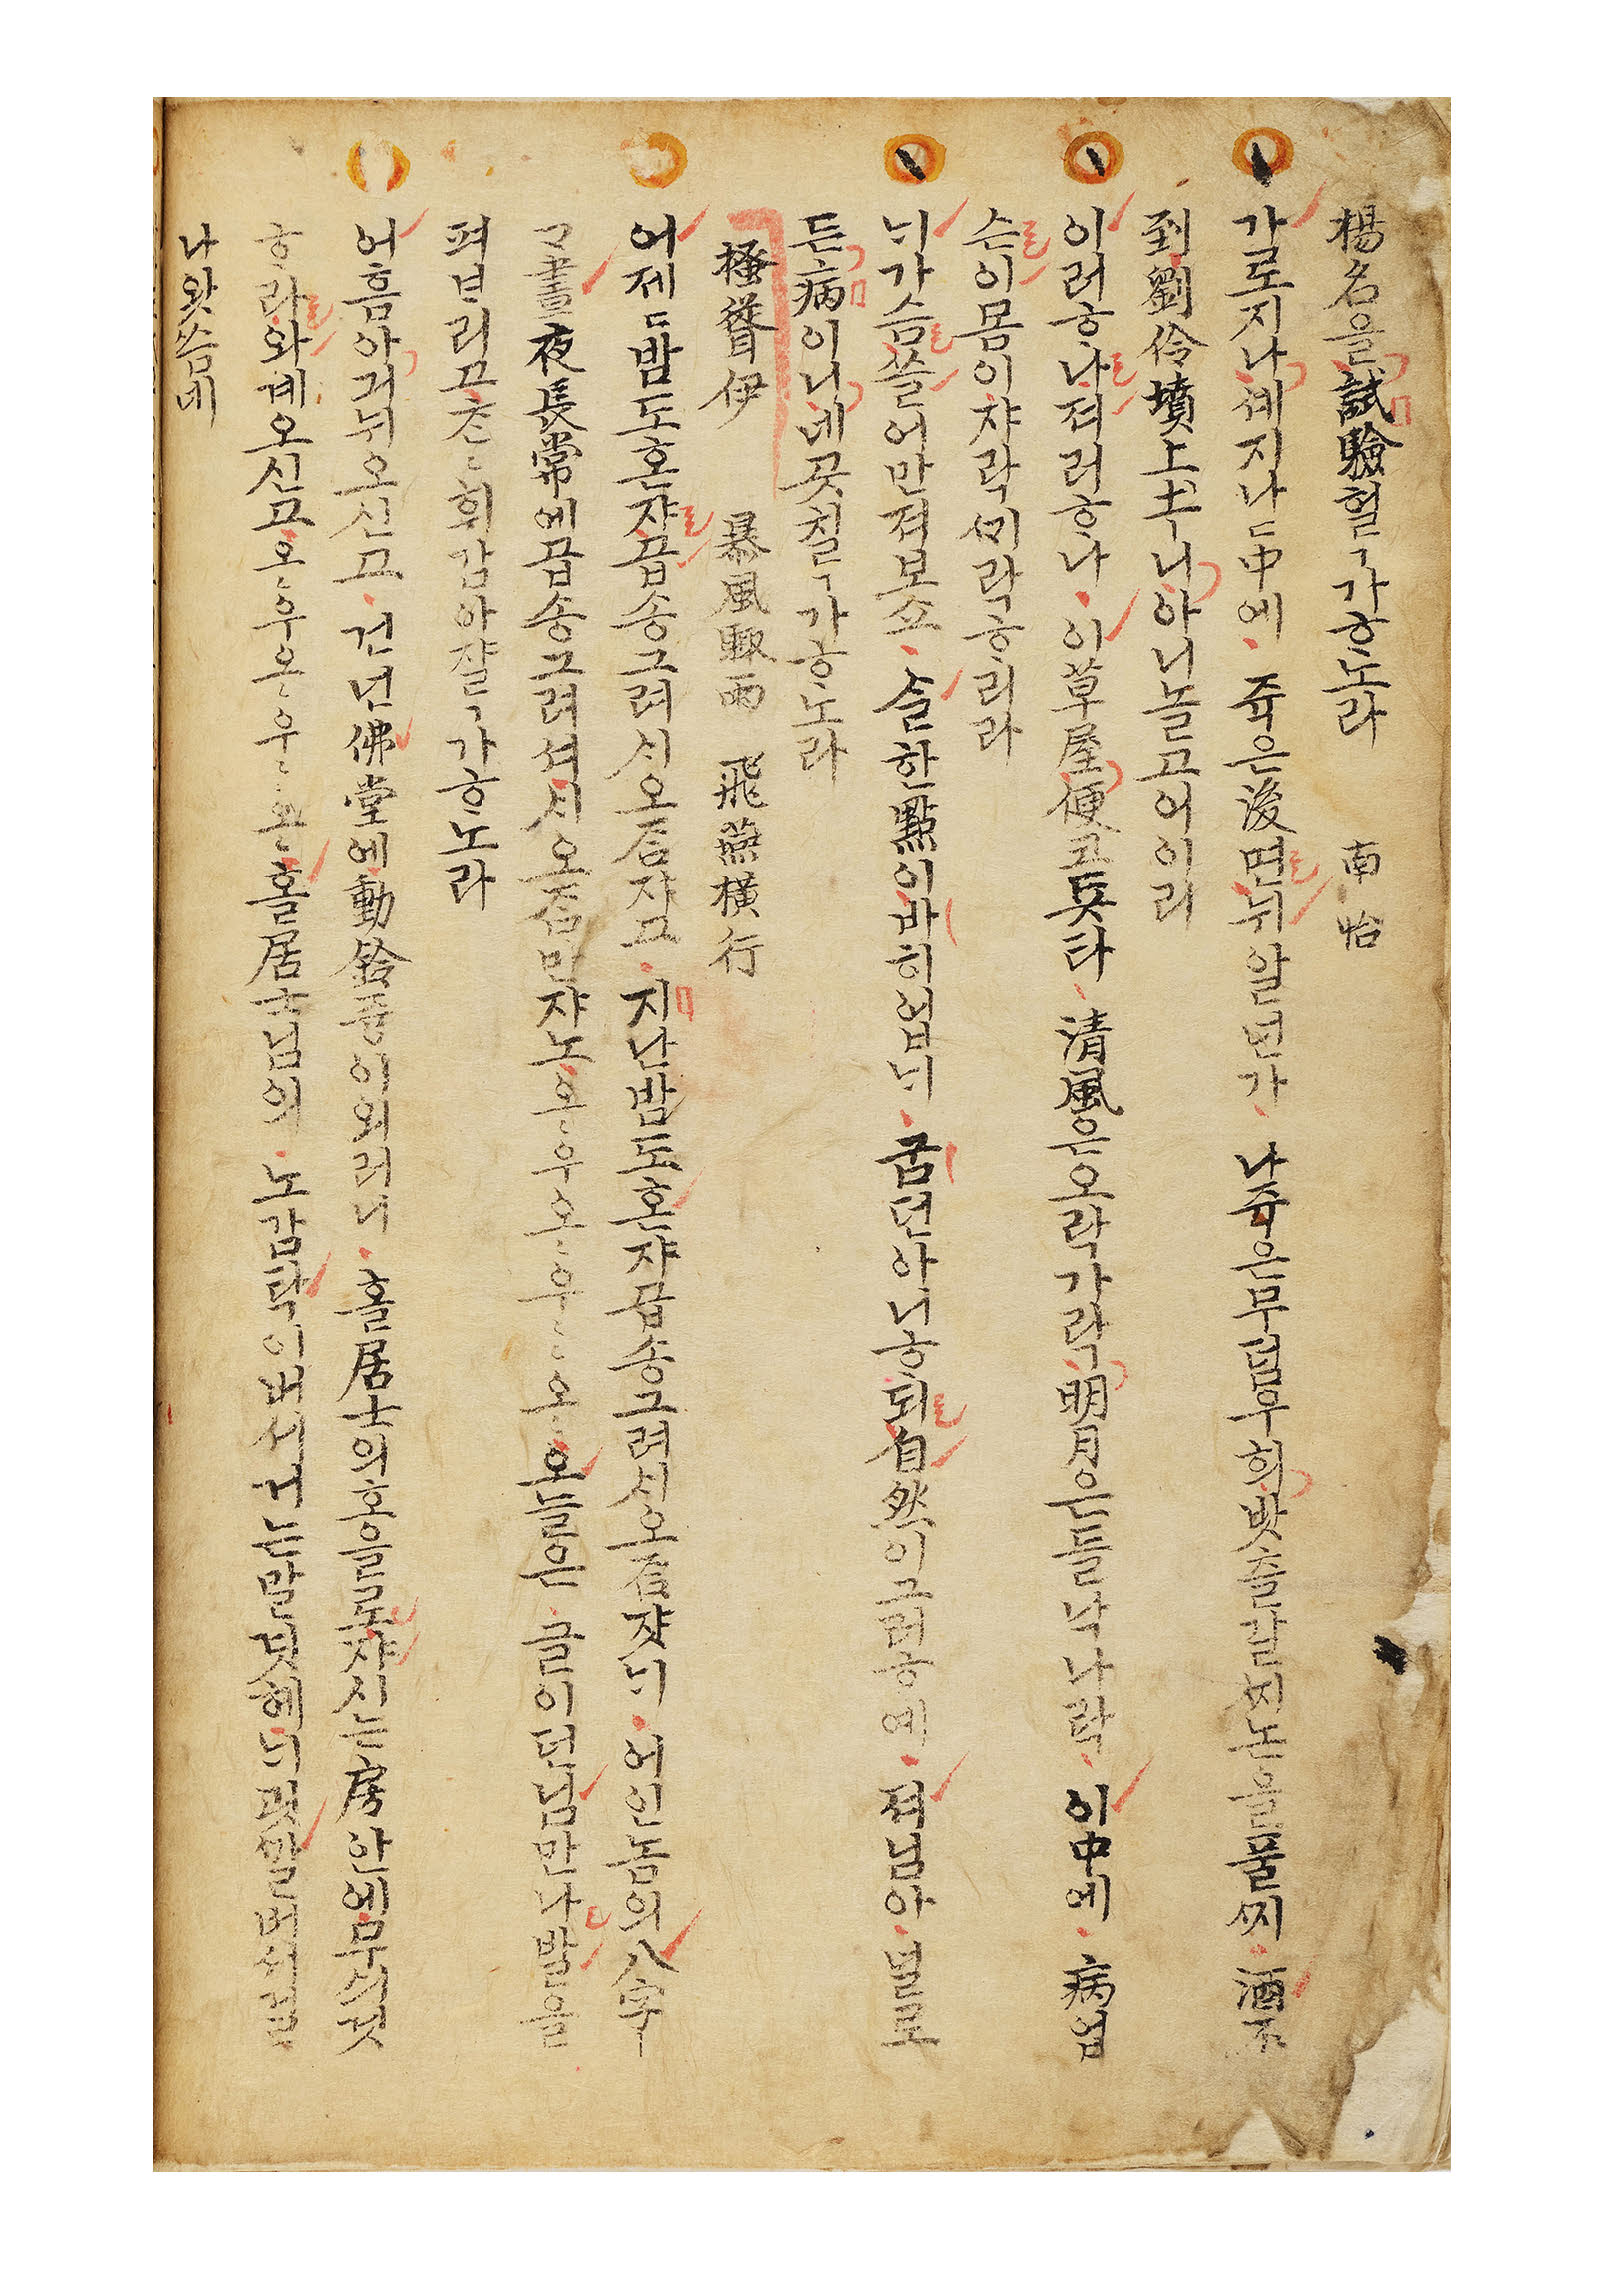 楊名을試驗헐ㄱ가ᄒᆞ노라 南怡
가로지나셰지나ㄷ中에 쥭은後면뉘알년가 나쥭은무덤우희밧츨갈찌논을풀찌 酒不
到劉伶墳上土ㅣ니아니놀고어이리
이러ᄒᆞ나져러ᄒᆞ나 이草屋便코둇타 淸風은오락가락明月은들낙나락 이中에 病업
슨이몸이쟈락ᄭᆡ락ᄒᆞ리라
ᄂᆡ가슴쓸어만져보쇼 슬한點이바히업ᄂᆡ 굼던아니ᄒᆞ되自然이그러ᄒᆞ예 져님아 널로
든病이니네곳칠ㄱ가ᄒᆞ노라
搔聳伊 暴風驟雨 飛燕橫行
어제ㄷ밤도혼쟈곱송그려ᄉᆡ오ᄌᆞᆷ쟈고 지난밤도혼쟈곱송그려ᄉᆡ오ᄌᆞᆷ쟛ᄂᆡ 어인놈의八字ㅣ
晝夜長常에곱송그려셔ᄉᆡ오ᄌᆞᆷ만쟈노 오늘은 글이던님만나발을
펴ᄇᆞ리고ᄎᆞᆫᄎᆞᆫ휘감아쟐ㄱ가ᄒᆞ노라
어흠아긔뉘오신고 건넌佛堂에動鈴즁이외러니 홀居士의홀로쟈시는房안에무ᄉᆡ것
ᄒᆞ라와계오신고 홀居士님의 노감탁이버셔거는말겻헤ᄂᆡ곳깔버셔걸
나왓씀네